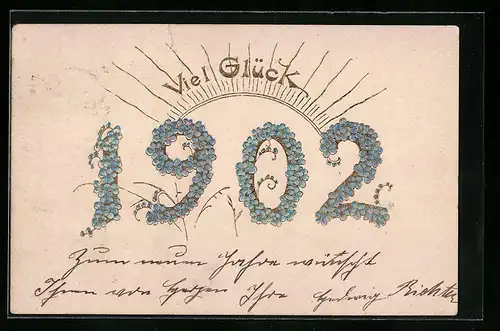 Viel Glück
1902
Zum neuen Jahre wünscht
Ihnen von Herzen Ihre Hedwig Richter